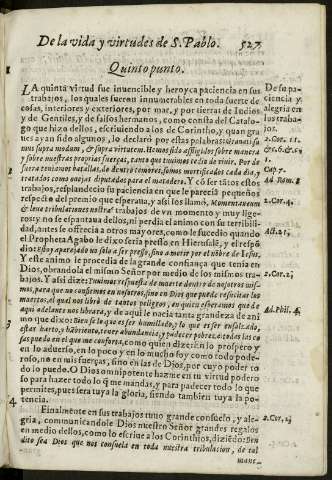 De la vida y virtudes de S. Pablo. 527
Quinto punto.
LA quinta virtud fue inuencible y heroyca paciencia en sus
trabajos, los quales fueron innumerables en toda suerte de
cosas, interiores y exteriores, por mar, y por tierra, de Iudios
y de Gentiles, y de falsos hermanos, como consta del Catalo-
go que hizo dellos, escriuiendo a los de Corintho, y quan gra-
ues ayan sido algunos, lo declaró por estas palabras
nus supra modum, & supra virtutem. Hemos sido affligidos sobre manera
y sobre nuestras proprias fuerças, tanto que tuuimos tedio de viuir. Por de
fuera teniamos batallas, de dentro temores, somos mortificados cada dia, y
tratados como ouejas diputadas para el matadero. Y có ser tātos estos
trabajos, resplandecio su paciencia en que le parecia pequeños
respecto del premio que esperaua, y assi los llamó, Momentaneum
& leue tribulationis nostræ trabajos de vn momento y muy lige-
ros y no se espantaua dellos, ni perdia el animo con su terribili-
dad, antes se offrecia a otros mayores, como le sucedio quando
el Propheta Agabo le dixo seria preso en Hierusalē, y el respō
dio: Yo aparejado no solo a ser preso, sino a morir por el nōbre de Iesus.
Y este animo le procedia de la grande confiança que tenia en
Dios, obrandola el mismo Señor por medio de los mismos tra-
bajos. Y assi dize: Tuuimos respuesta de muerte dentro de nosotros mis-
mos, para que no confiemos en nosotros, sino en Dios que puede resucitar los
muertos, el qual nos libró de tantos peligros, en quien esperamos que de
aqui adelante nos librara, y de aqui le nacia tanta grandeza de ani
mo que dixo: Bien se lo que es ser humillado, y lo que es ser ensalçado,
estar harto, y hābriento, tener abundancia, y padecer pobreza, a todas las co
sas puedo en el que me conforta, como quien dize: en lo prospero y
en lo aduerso, en lo poco y en lo mucho soy como todo pode-
roso, no en mis fuerças, sino en las de Dios, por cuyo poder to
do lo puedo. O Dios omnipotente hazme en tu virtud podero
so para hazer todo lo q̃ me mandas, y para padecer todo lo que
permites, pues sera tuya la gloria, siendo tambien tuya la po-
tencia.
4 Finalmente en sus trabajos tuuo grande consuelo, y ale-
gria, comunicandole Dios nuestro Señor grandes regalos
en medio dellos, como lo escriue a los Corinthios, diziēdo: Ben
dito sea Dios que nos consuela en toda nuestra tribulacion, de tal
mane-
De su pa-
ciencia y
alegria en
los traba-
jos.
2. Cor. 11.
Cap. 7.
Ad Rom. 8
2. Cor. 4.
Act. 21.
2. Cor. 1.
Ad Phil. 4.
2. Cor. 1.